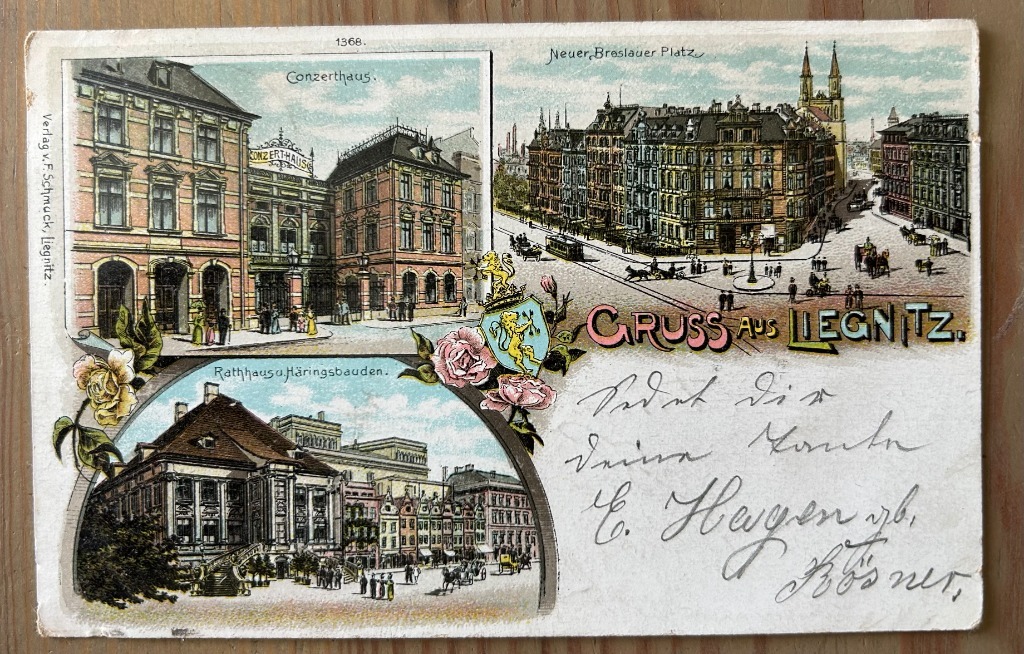 1368.
Conzerthaus.
CONZERT-HAUS
Neuer Breslauer Platz
Verlag v. F. Schmuck, Liegnitz.
GRUSS AUS LIEGNITZ.
Rathhaus u. Häringsbauden.
dir
deine Tante
E. Hagen gb.
Rösner,